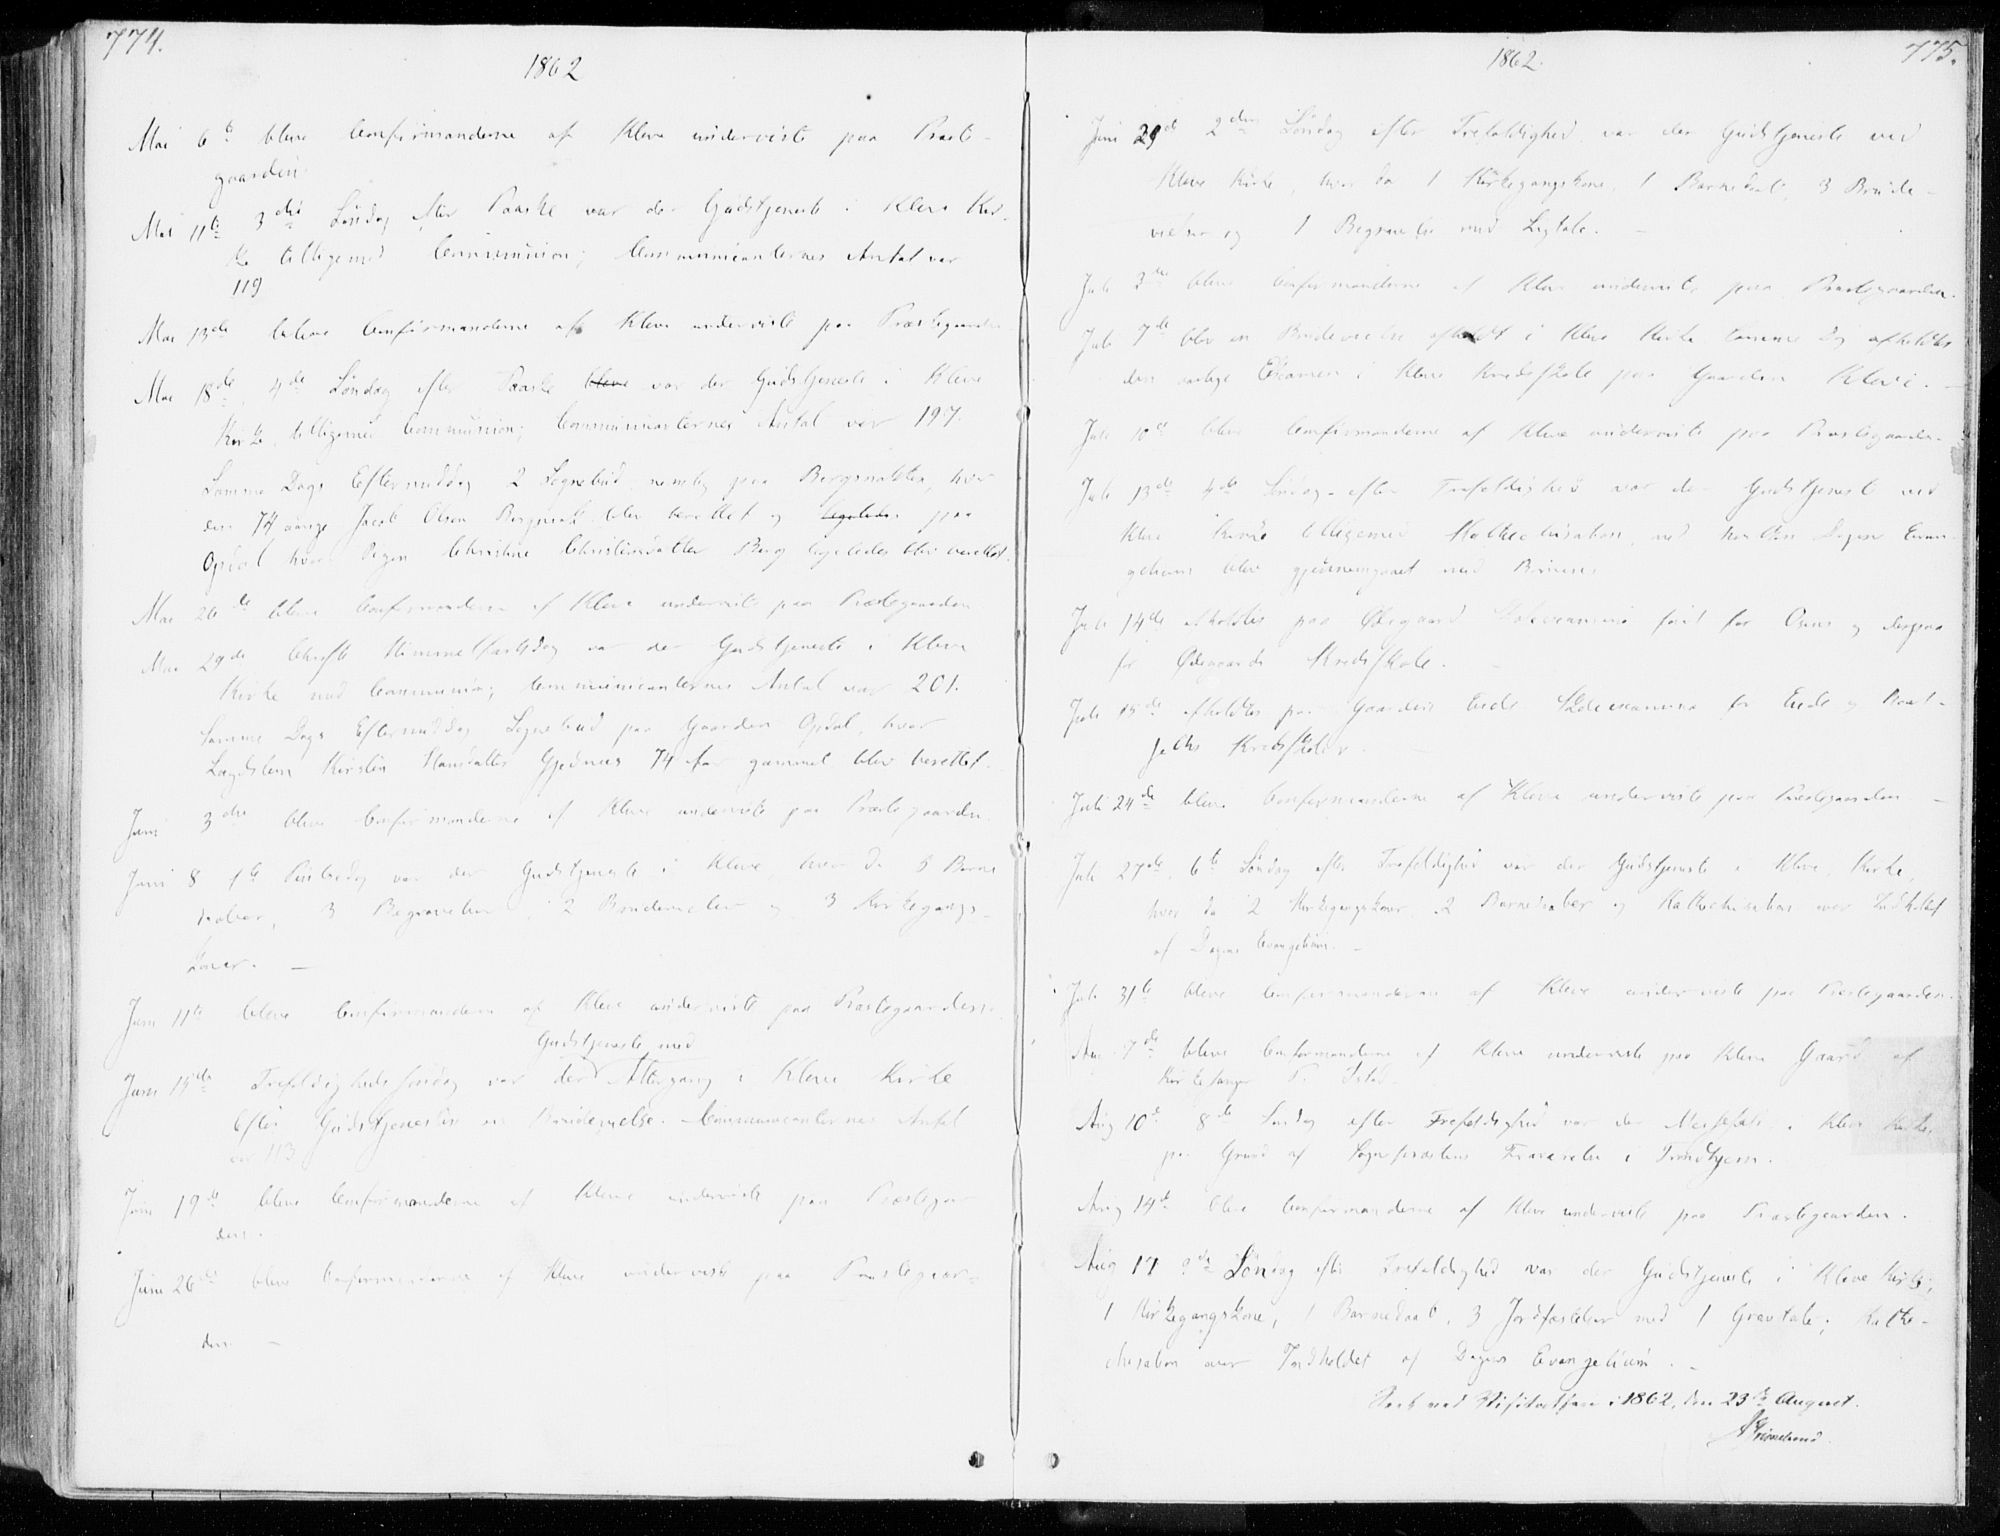 774.
1862
Mai 6te bleve Confirmanderne af Kleve underviste paa Præste-
gaarden.
Mai 11te 3die Søndag efter Paaske var der Gudstjeneste i Kleve Kir-
ke tilligemed Communion; Communicanternes Antal var
119
Mai 13de bleve Confirmanderne af Kleve underviste paa Præstegaarden
Mai 18de 4de Søndag efter Paaske bleve var der Gudstjeneste i Kleve
Kirke tilligemed Communion; Communicanternes Antal var 197.
Samme Dags Eftermiddag 2 Sognebud nemlig paa hvor
den 74 aarige Jacob Olsen blev berettet og ligeledes paa
Opdal hvor Pigen Christine Christensdatter Berg ligeledes blev berettet.
Mai 26de bleve Confirmanderne af Kleve underviste paa Præstegaarden
Mai 29de Christi Himmelfartsdag var der Gudstjeneste i Kleve
Kirke med Communion; Communicanternes Antal var 201.
Samme Dags Eftermiddag Sognebud paa Gaarden Opdal, hvor
Lægdslem Kirsten Hansdatter 74 Aar gammel blev berettet.
Juni 3die bleve Confirmanderne af Kleve underviste paa Præstegaarden.
Juni 8 1ste Pintsedag var der Gudstjeneste i Kleve, hvor da 5 Barne
daaber, 3 Begravelser, 2 Brudevielser og 3 Kirkegangs-
koner. —
Juni 11te bleve Confirmanderne af Kleve underviste paa Præstegaarden.
Gudstjeneste med
Juni 15de Trefoldighedssøndag var der Altergang i Kleve Kirke
Efter Gudstjenesten en Brudevielse. Communicanternes Antal
var 113
Juni 19de bleve Confirmanderne af Kleve underviste paa Præstegaar
den.
Juni 26de bleve Confirmanderne af Kleve underviste paa Præstegaar-
den. —
1862.
775.
Juni 29de 2den Søndag efter Trefoldighed var der Gudstjeneste ved
Kleve Kirke, hvor da 1 Kirkegangskone, 1 Barnedaab, 3 Brude-
vielser og 1 Begravelse med Ligtale. —
Juli 3die bleve Confirmanderne af Kleve underviste paa Præstegaarden.
Juli 7de blev en Brudevielse afholdt i Kleve Kirke Samme Dag afholdtes
den aarlige Examen i Kleve Kredsskole paa Gaarden Kleve. —
Juli 10de bleve Confirmanderne af Kleve underviste paa Præstegaarden.
Juli 13de 4de Søndag efter Trefoldighed var der Gudstjeneste ved
Kleve Kirke tilligemed Kathechisation, ved hvilken Dagens Evan-
gelium blev gjennemgaaet med Børnene.
Juli 14de afholdtes paa Ødegaard Skoleexamina først for Osens og derpaa
for Ødegaards Kredsskole. —
Juli 15de afholdtes paa Gaarden Eide Skoleexamina for Eide og
Kredsskoler. —
Juli 24de bleve Confirmanderne af Kleve underviste paa Præstegaarden —
Juli 27de 6te Søndag efter Trefoldighed var der Gudstjeneste i Kleve Kirke,
hvor da 2 Kirkegangskoner, 2 Barnedaaber og Kathechisation over Indholdet
af Dagens Evangelium. —
Juli 31te bleve Confirmanderne af Kleve underviste paa Præstegaarden.
Aug 7de bleve Confirmanderne af Kleve underviste paa Kleve Gaard af
Kirkesanger
Aug 10de 8de Søndag efter Trefoldighed var der Messefald i Kleve Kirke
paa Grund af Sognepræstens Fraværelse i Trondhjem.
Aug 14de bleve Confirmanderne af Kleve underviste paa Præstegaarden.
Aug 17 9de Søndag efter Trefoldighed var der Gudstjeneste i Kleve Kirke,
1 Kirkegangskone, 1 Barnedaab, 3 Jordfæstelser med 1 Gravtale; Kathe-
chisation over Indholdet af Dagens Evangelium. —
Seet ved Visitatsen i 1862, den 23de August.